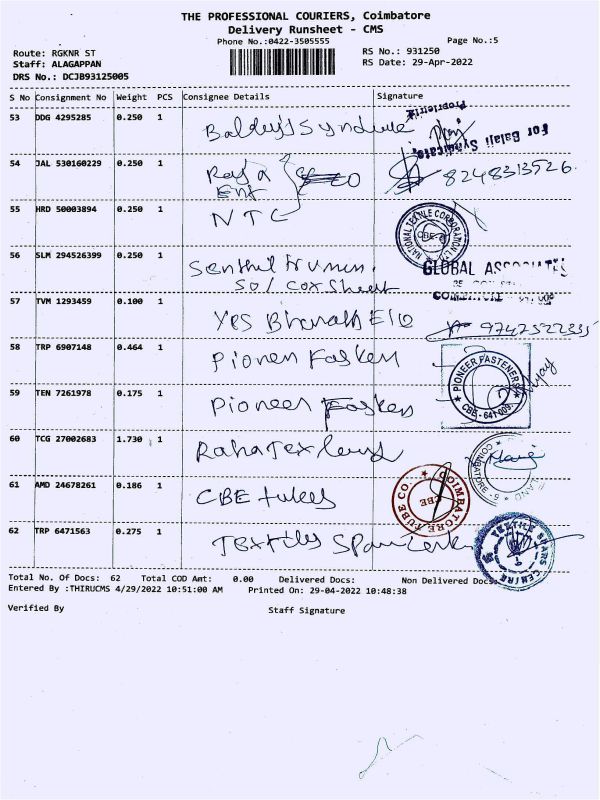 THE PROFESSIONAL COURIERS, Coimbatore
Delivery Runsheet - CMS
Phone No.:0422-3505555 Page No.:5
Route: RGKNR ST RS No.: 931250
Staff: ALAGAPPAN RS Date: 29-Apr-2022
DRS No.: DCJB93125005
S No Consignment No Weight PCS Consignee Details Signature
53 DDG 4295285 0.250 1
For Balaji Syndicate,
Proprietrix
54 JAL 530160229 0.250 1 8248313526
55 HRD 50003894 0.250 1 NTC
NATIONAL TEXTILE CORPORATION
CBE
56 SLM 294526399 0.250 1
GLOBAL ASSOCIATES
57 TVM 1293459 0.100 1 YES Bharath
58 TRP 6907148 0.464 1
PIONEER FASTENERS
CBE - 641 009.
59 TEN 7261978 0.175 1 Pioneer
60 TCG 27002683 1.730 1
COIMBATORE
61 AMD 24678261 0.186 1 CBE tubes
COIMBATORE TUBE CO.
CBE
62 TRP 6471563 0.275 1
TEXTILE SPARS CENTRE
Total No. Of Docs: 62 Total COD Amt: 0.00 Delivered Docs: Non Delivered Docs:
Entered By :THIRUCMS 4/29/2022 10:51:00 AM Printed On: 29-04-2022 10:48:38
Verified By Staff Signature